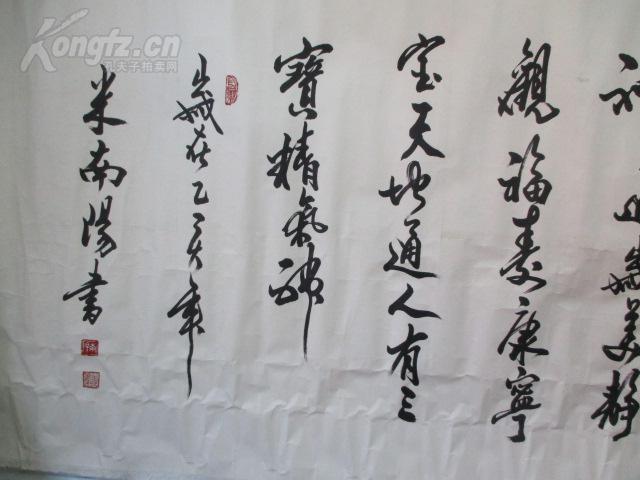 美静
觀福壽康寧
宝天地通人有三
寶精氣神
歲在乙亥年
米南陽書
Kongfz.cn
孔夫子拍卖网